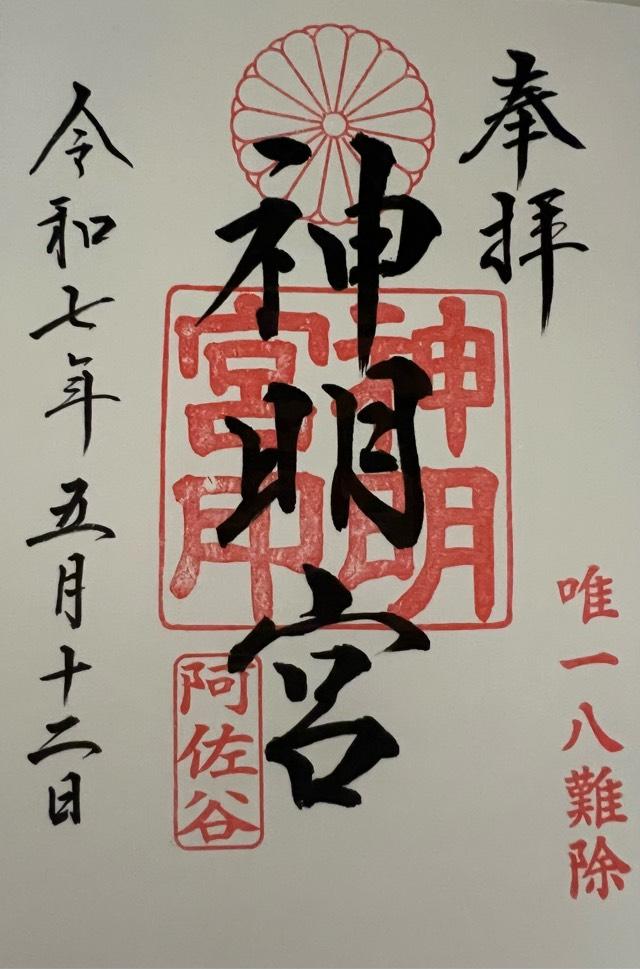 奉拝
唯一八難除
神明宮
神明
宮印
阿佐谷
令和七年五月十二日